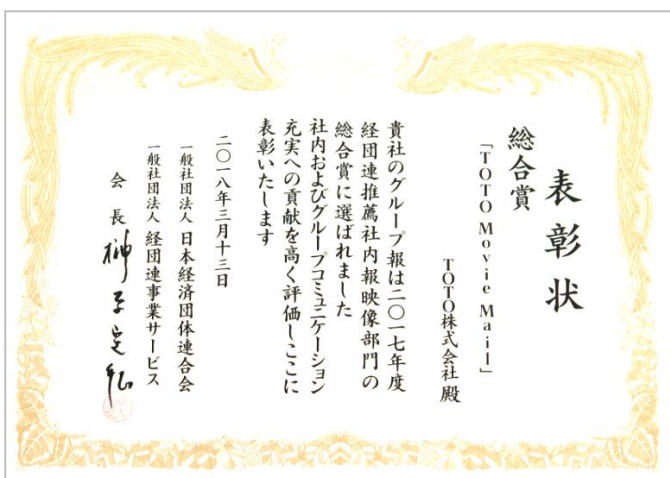 表彰状
総合賞
「TOTO Movie Mail」
TOTO株式会社殿
貴社のグループ報は二〇一七年度
経団連推薦社内報映像部門の
総合賞に選ばれました
社内およびグループコミュニケーション
充実への貢献を高く評価しここに
表彰いたします
二〇一八年三月十三日
一般社団法人 日本経済団体連合会
一般社団法人 経団連事業サービス
会長 榊原定征